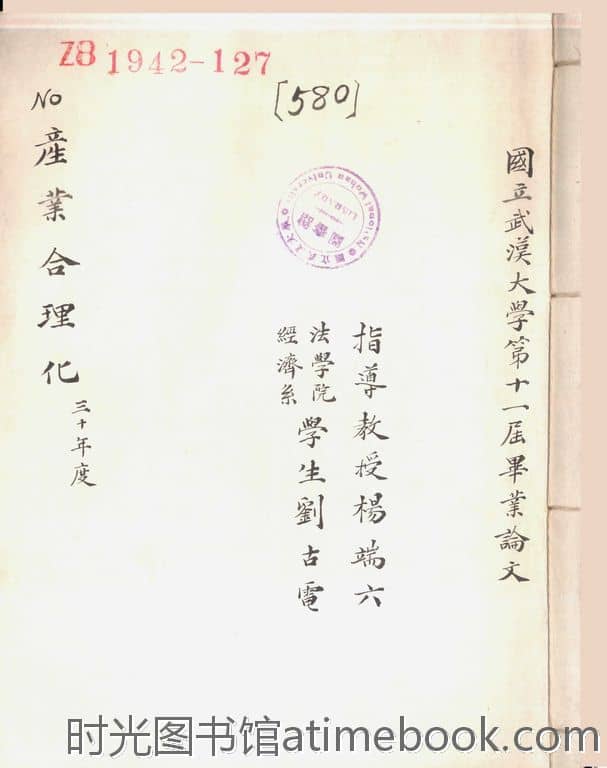 Z8 1942-127
[580]
NO
國立武漢大學第十一屆畢業論文
指導教授楊端六
法學院
經濟系
學生劉古電
產業合理化
三十年度
國立武漢大學
圖書館
National Wuhan University
LIBRARY
时光图书馆atimebook.com